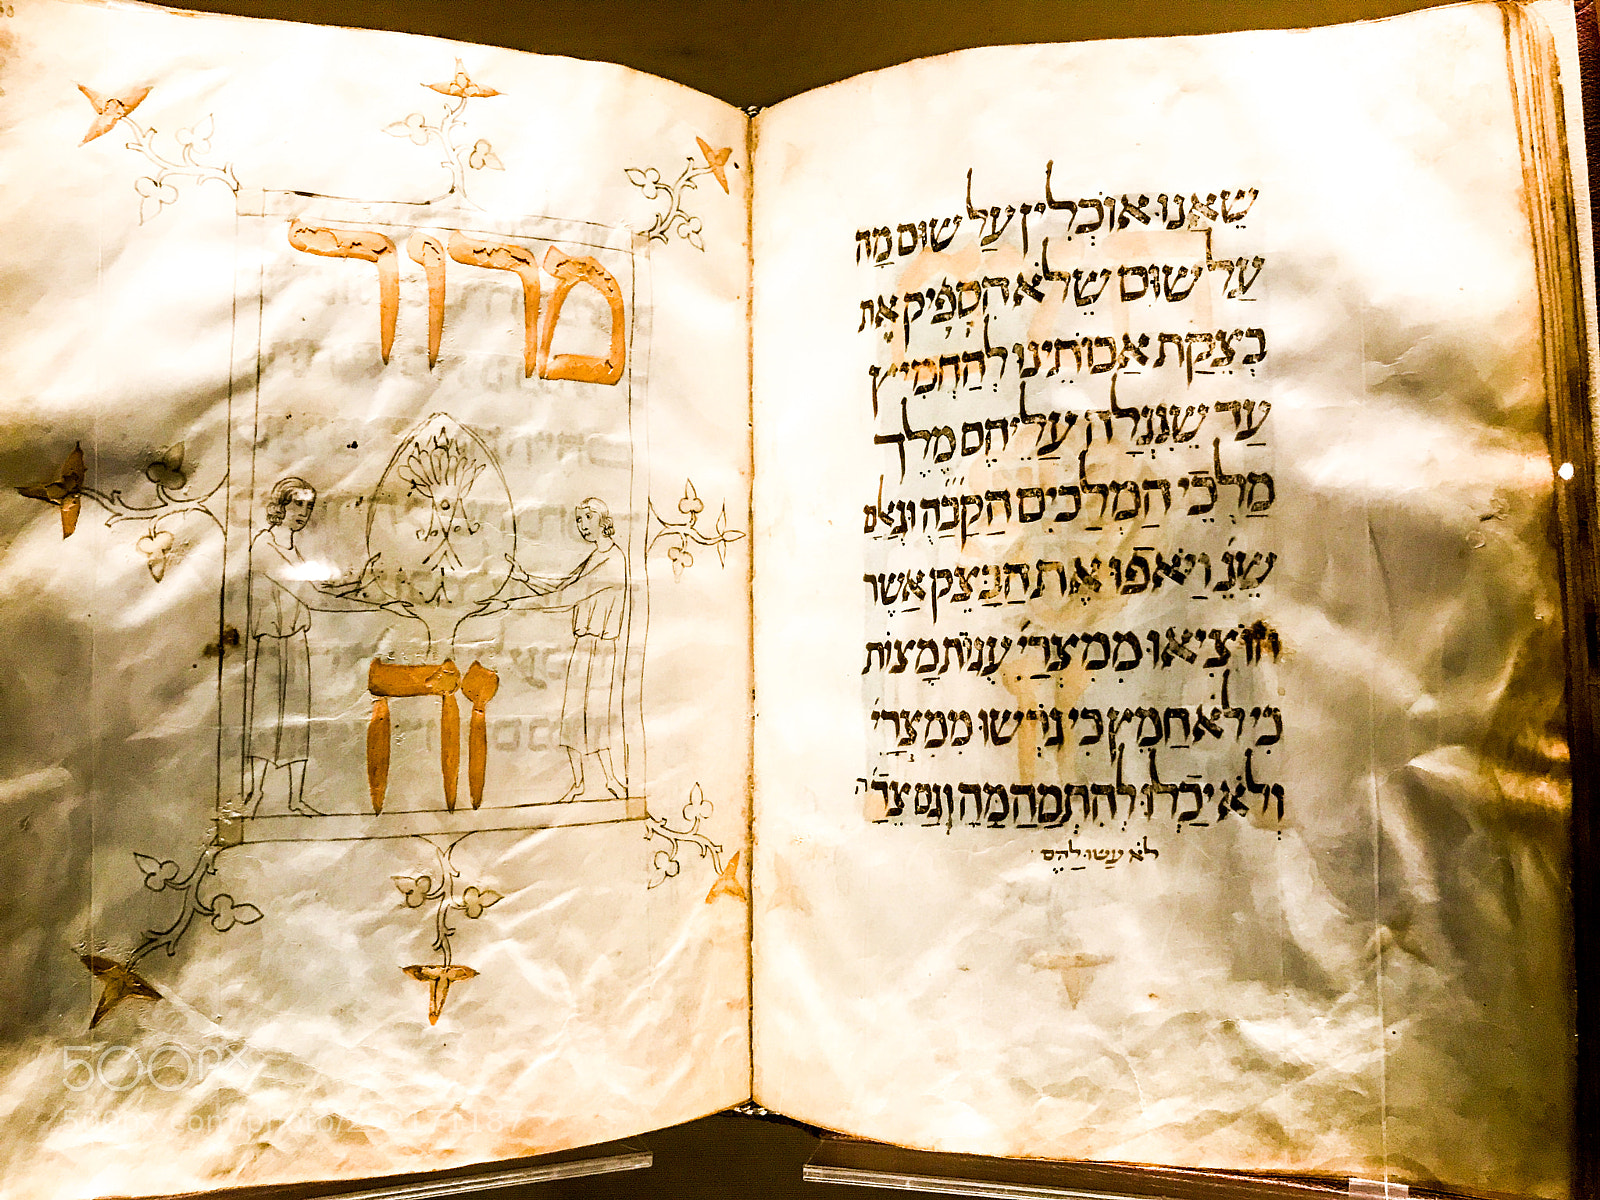 שאנו אוכלין על שום מה
על שום שלא הספיק את
בצקת אבותינו להחמיץ
עד שנגלה עליהם מלך
מלכי המלכים הקבה וגאלם
שנ ויאפו את הבצק אשר
הוציאו ממצרי עגות מצות
כי לא חמץ כי גרשו ממצרי
ולא יכלו להתמהמה וגם צדה
לא עשו להם
מרור
זה
500px